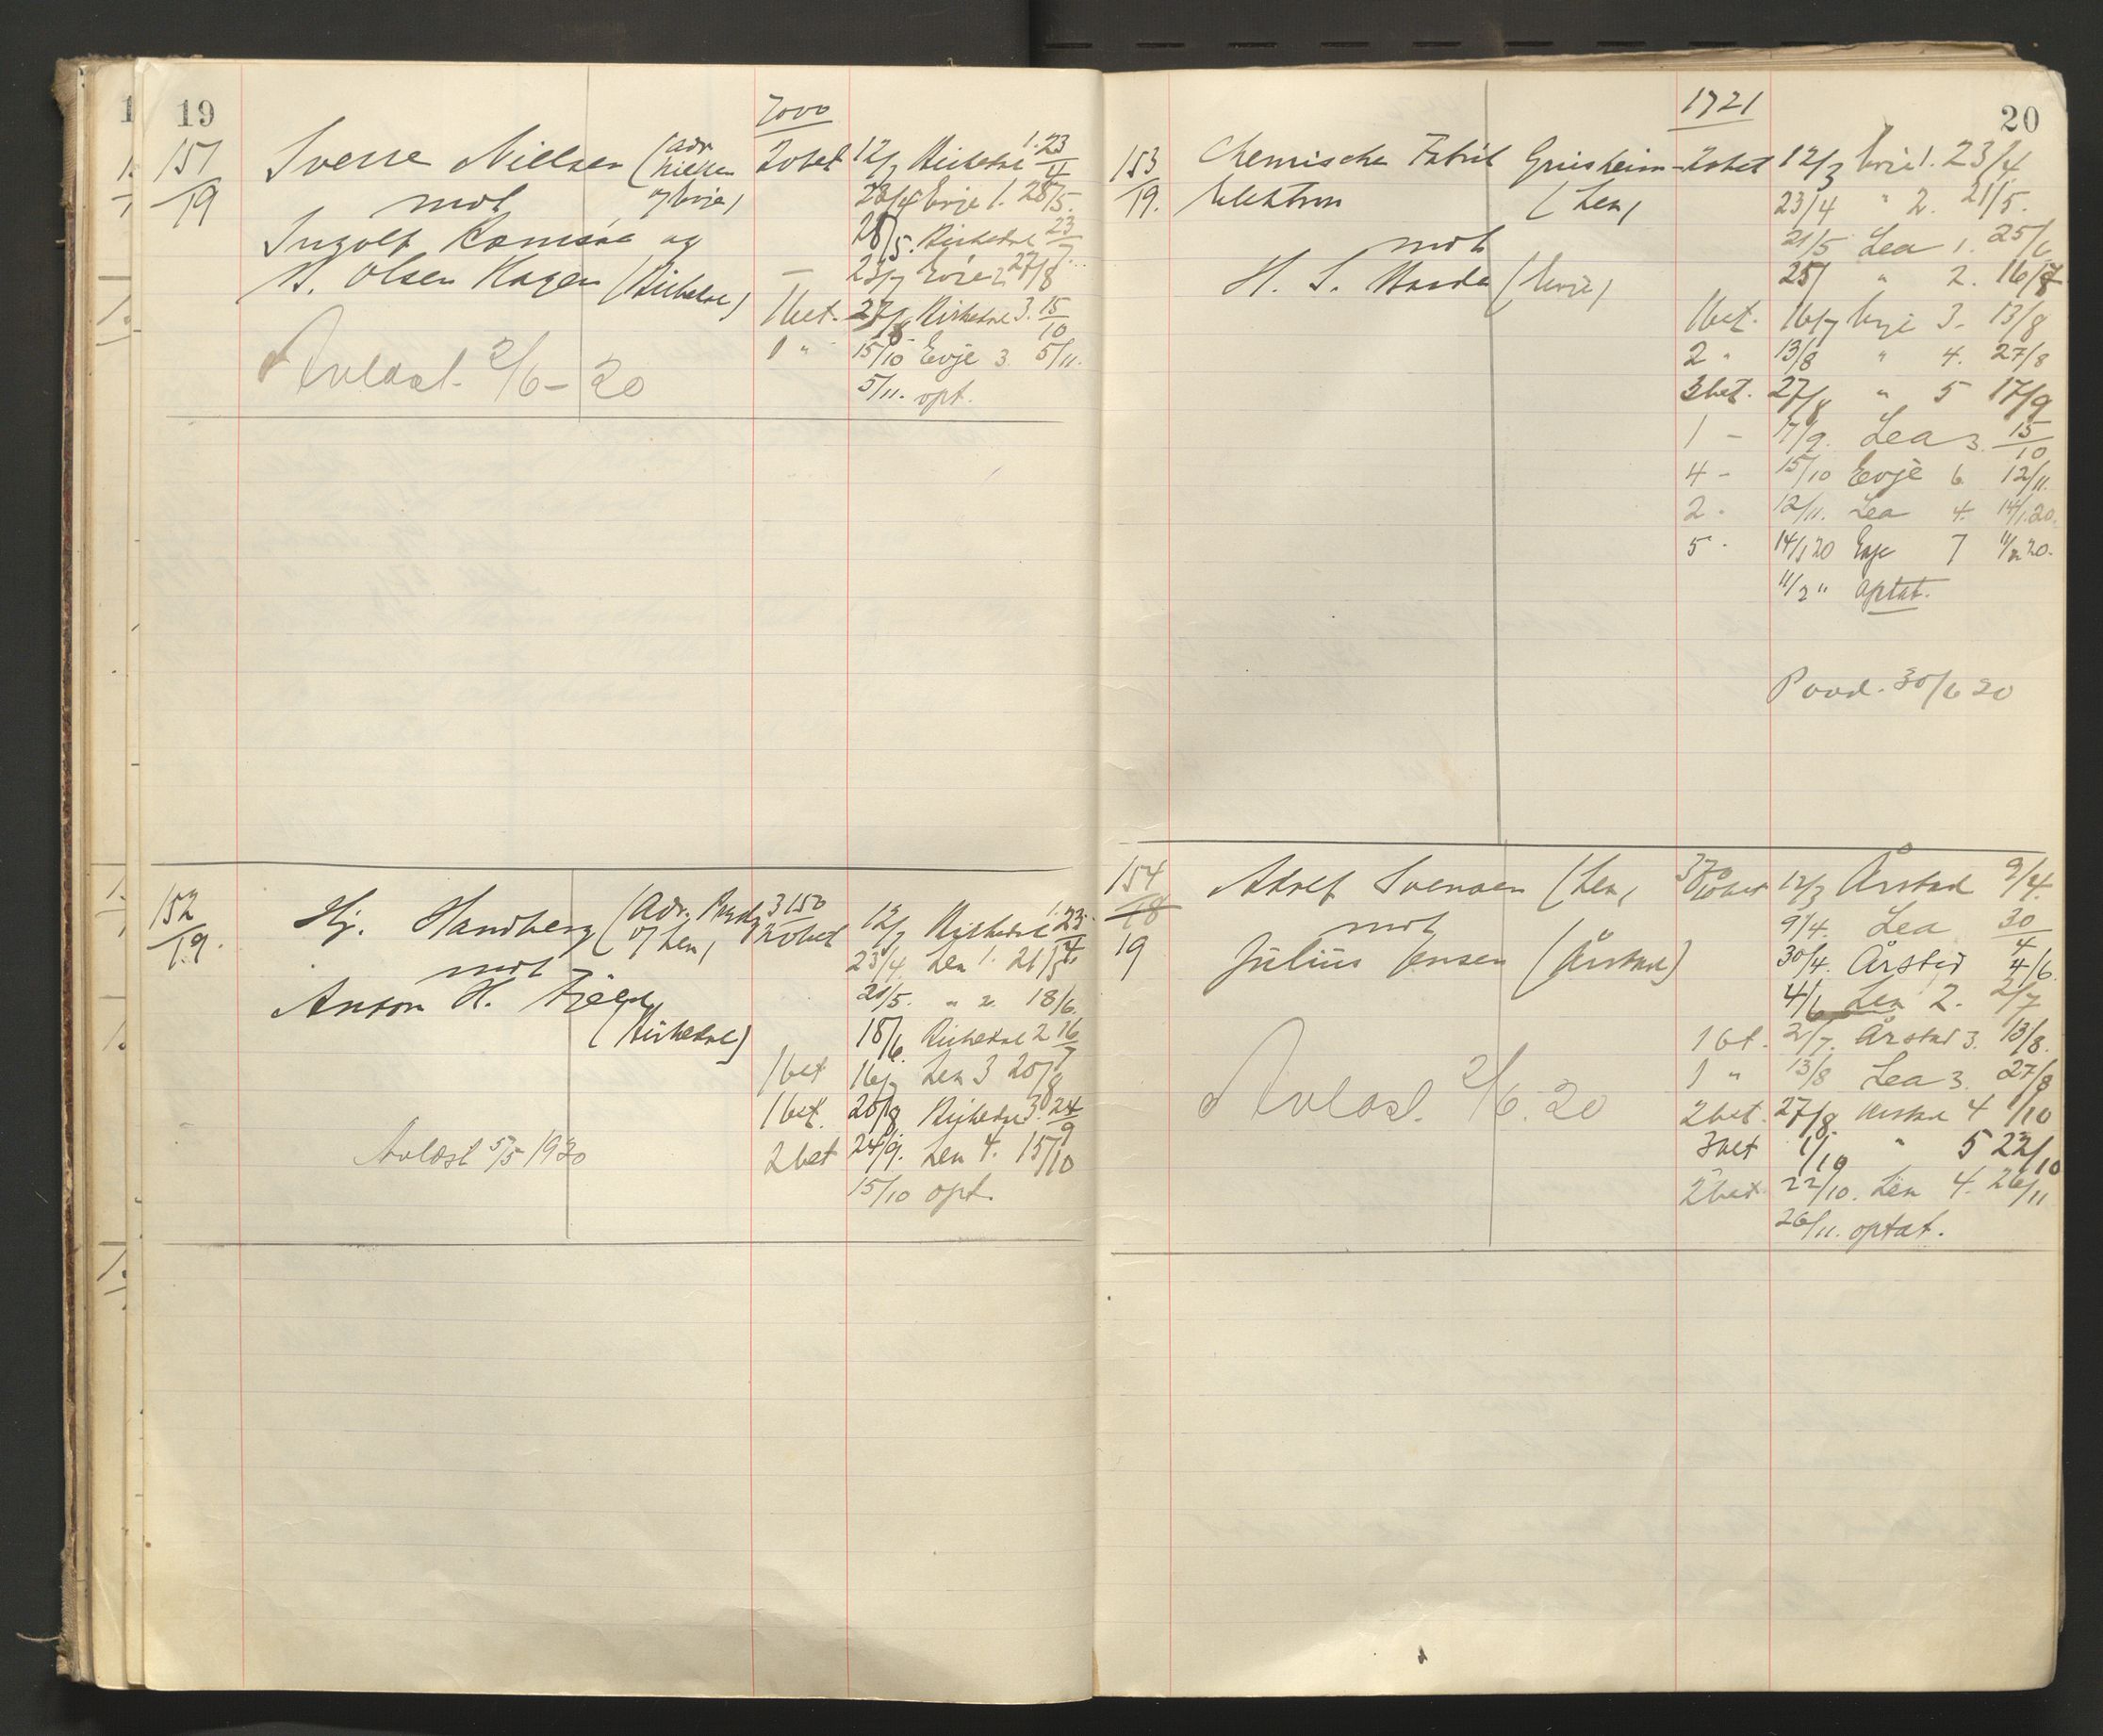 19
7000
151/19 Sverre Nielsen (adv. Nielsen og Evje) 20 bet 12/3 Kirkedal 1. 23/4
mot 23/4 Evje 1. 28/5.
Ingolf og 28/5. Kirkedal 23/7
N. Olsen Hagen (Kirkedal) — 23/7 Evje 2. 27/8
1 bet. 27/8 Kirkedal 3. 15/10
1 " 15/10 Evje 3 5/11.
Avlæst. 2/6 - 20
5/11. opt.
152/19. Hj. Handberg (Adv. og Lea) 3150 20 bet 12/3 Kirkedal 1. 23/4
mot 23/4. Lea 1. 21/5
Anton H. 21/5. " 2. 18/6.
(Kirkedal) 18/6. Kirkedal 2 16/7
1 bet 16/7 Lea 3 20/8
1 bet. 20/8 Kirkedal 3. 24/9
Avlæst 5/5 1920 2 bet 24/9. Lea 4. 15/10
15/10 opt.
20
1721
153/19. Chemische Fabrik Griesheim- 20 bet 12/3 Evje 1. 23/4
Elektron (Lea) 23/4 " 2. 21/5.
mot 21/5 Lea 1. 25/6
H. S. (Evje) 25/ " 2. 16/7
1 bet. 16/7 Evje 3. 13/8
2 " 13/8 " 4. 27/8
3 bet. 27/8 " 5 17/9
1 - 17/9. Lea 3 15/10
4 - 15/10 Evje 6 12/11.
2 . 12/11. Lea 4. 14/1.20.
5 . 14/1 20 Evje 7 11/2 20.
11/2 " optat.
30/6 20
154/18 19 Adolf Svensen (Lea) 370 20 bet 12/3 Årstad 9/4.
mot 9/4. Lea 30/4
Julius Jensen (Årstad) 30/4. Årstad 4/6
4/6 Lea 2. 2/7
1 bt. 2/7. Årstad 3. 13/8.
1 " 13/8 Lea 3. 27/8
Avlæst. 2/6. 20
2 bet. 27/8. Årstad 4 1/10
3 bet 1/10 " 5 22/10
2 bet. 22/10. Lea 4. 26/11
26/11. optat.